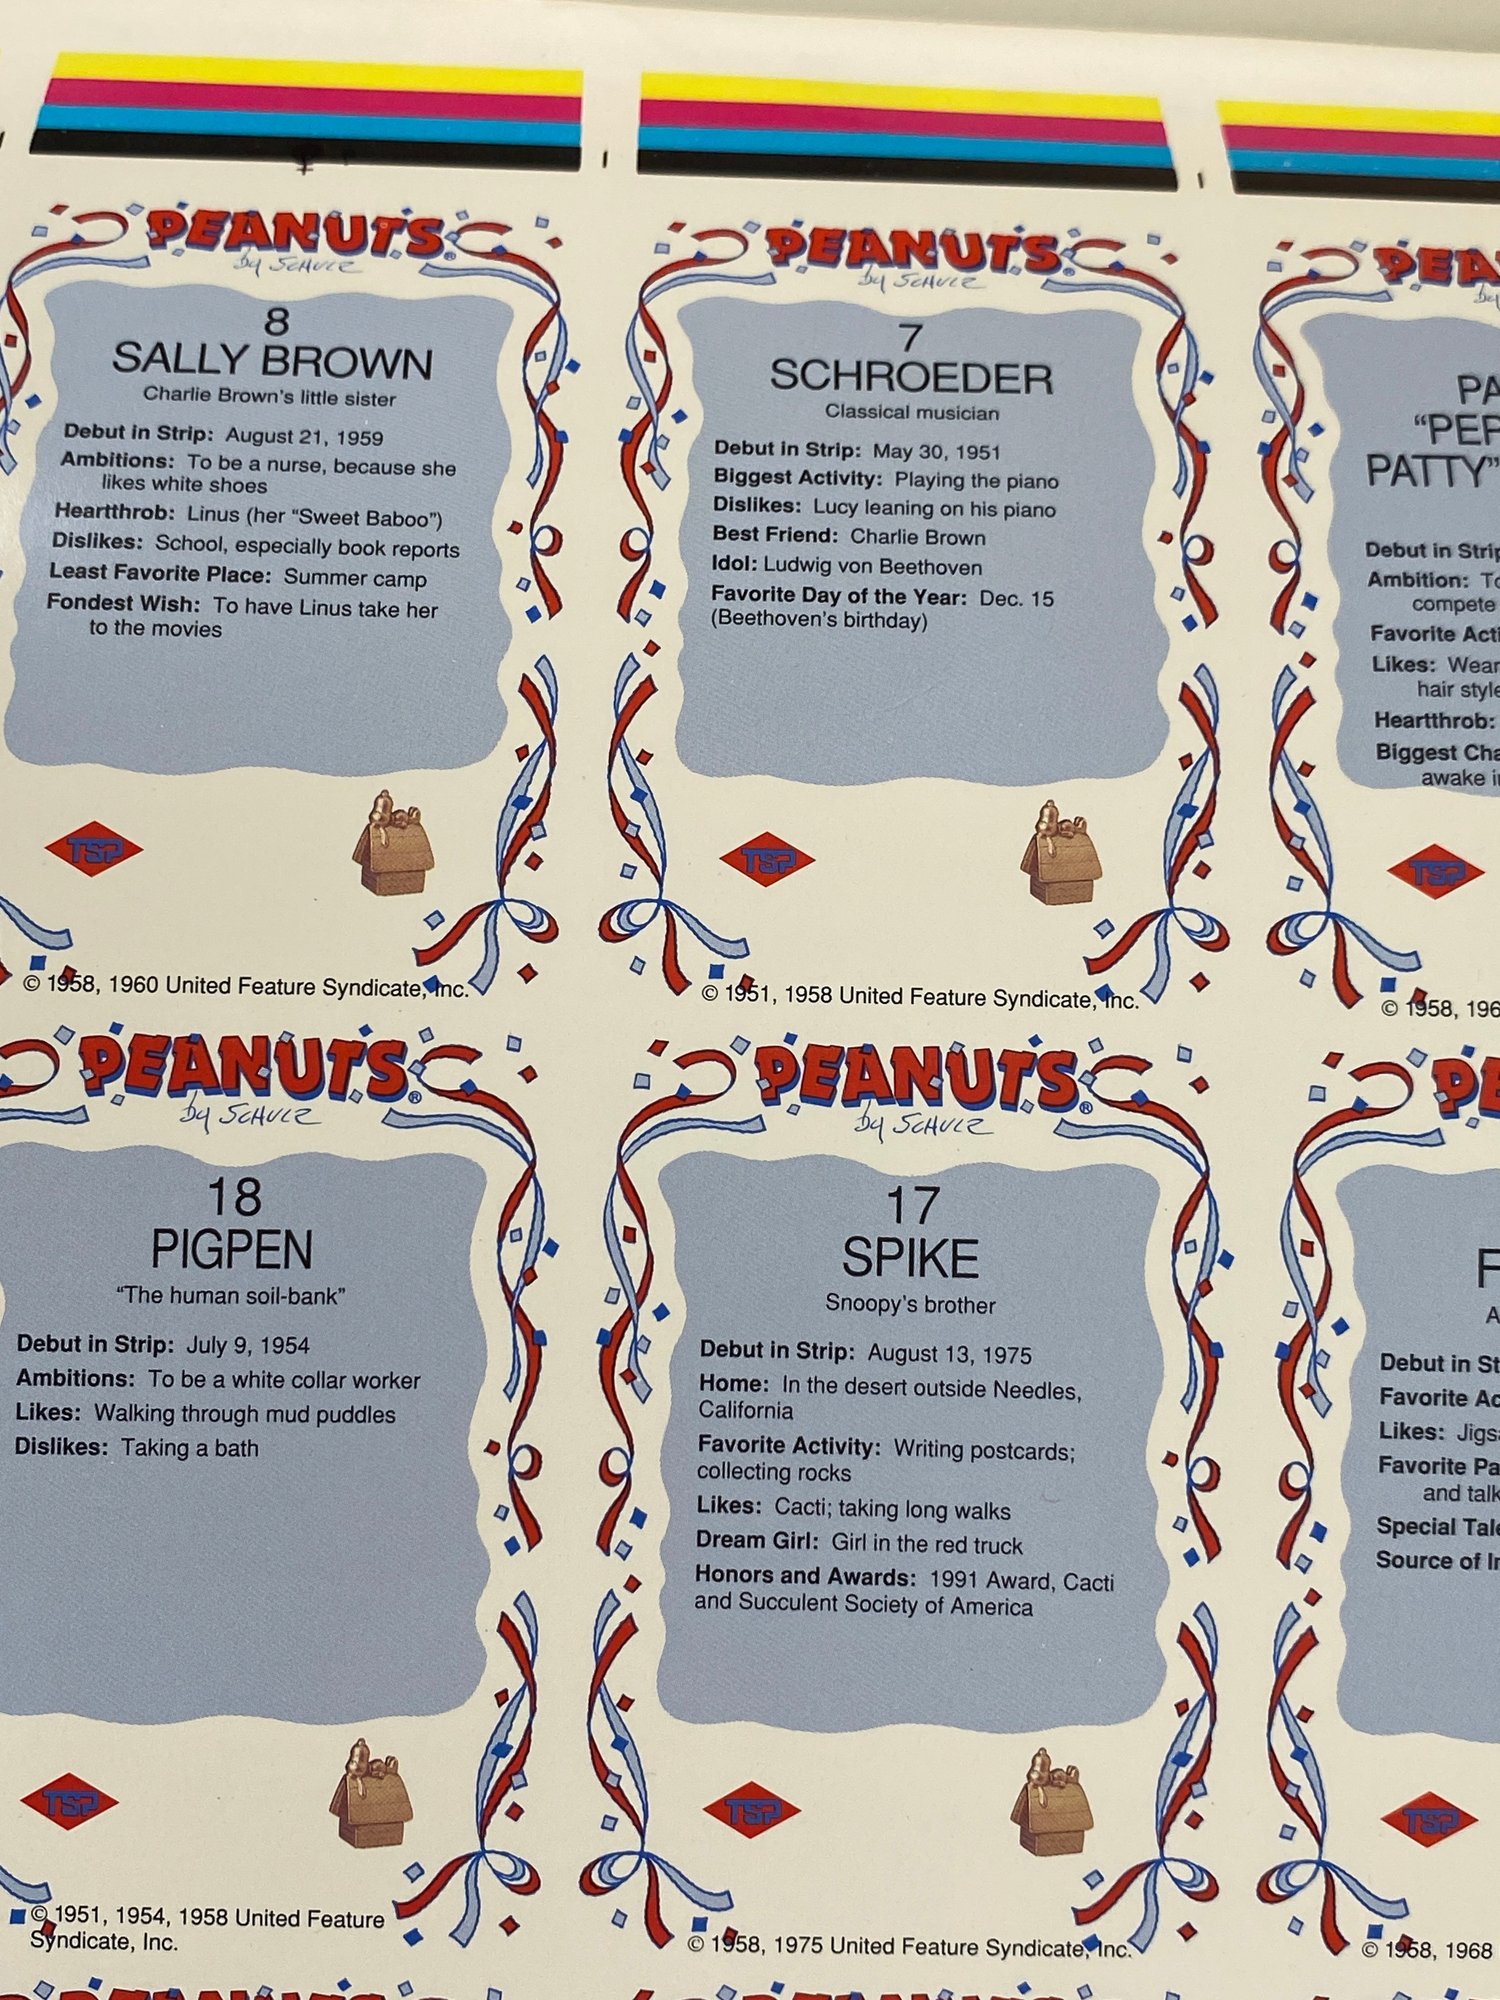 PEANUTS®
by SCHULZ
8
SALLY BROWN
Charlie Brown's little sister
Debut in Strip: August 21, 1959
Ambitions: To be a nurse, because she
likes white shoes
Heartthrob: Linus (her “Sweet Baboo”)
Dislikes: School, especially book reports
Least Favorite Place: Summer camp
Fondest Wish: To have Linus take her
to the movies
TSP
© 1958, 1960 United Feature Syndicate, Inc.
PEANUTS®
by SCHULZ
7
SCHROEDER
Classical musician
Debut in Strip: May 30, 1951
Biggest Activity: Playing the piano
Dislikes: Lucy leaning on his piano
Best Friend: Charlie Brown
Idol: Ludwig von Beethoven
Favorite Day of the Year: Dec. 15
(Beethoven's birthday)
TSP
© 1951, 1958 United Feature Syndicate, Inc.
PATTY”
Debut in
Ambition:
compete
Favorite
Likes:
hair
Heartthrob:
Biggest
awake
TSP
© 1958,
PEANUTS®
by SCHULZ
18
PIGPEN
“The human soil-bank”
Debut in Strip: July 9, 1954
Ambitions: To be a white collar worker
Likes: Walking through mud puddles
Dislikes: Taking a bath
TSP
© 1951, 1954, 1958 United Feature
Syndicate, Inc.
PEANUTS®
by SCHULZ
17
SPIKE
Snoopy's brother
Debut in Strip: August 13, 1975
Home: In the desert outside Needles,
California
Favorite Activity: Writing postcards;
collecting rocks
Likes: Cacti; taking long walks
Dream Girl: Girl in the red truck
Honors and Awards: 1991 Award, Cacti
and Succulent Society of America
TSP
© 1958, 1975 United Feature Syndicate, Inc.
Debut in
Favorite
Likes:
Favorite
and
Special
Source of
TSP
© 1958, 1968